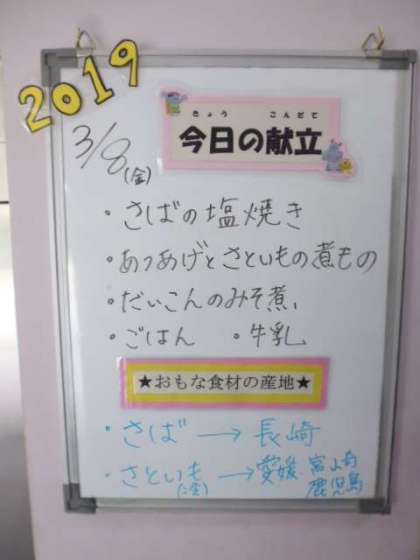 2019
3/8(金)
きょう こんだて
今日の献立
・さばの塩焼き
・あつあげとさといもの煮もの
・だいこんのみそ煮
・ごはん ・牛乳
★おもな食材の産地★
・さば → 長崎
・さといも → 愛媛 宮崎
鹿児島